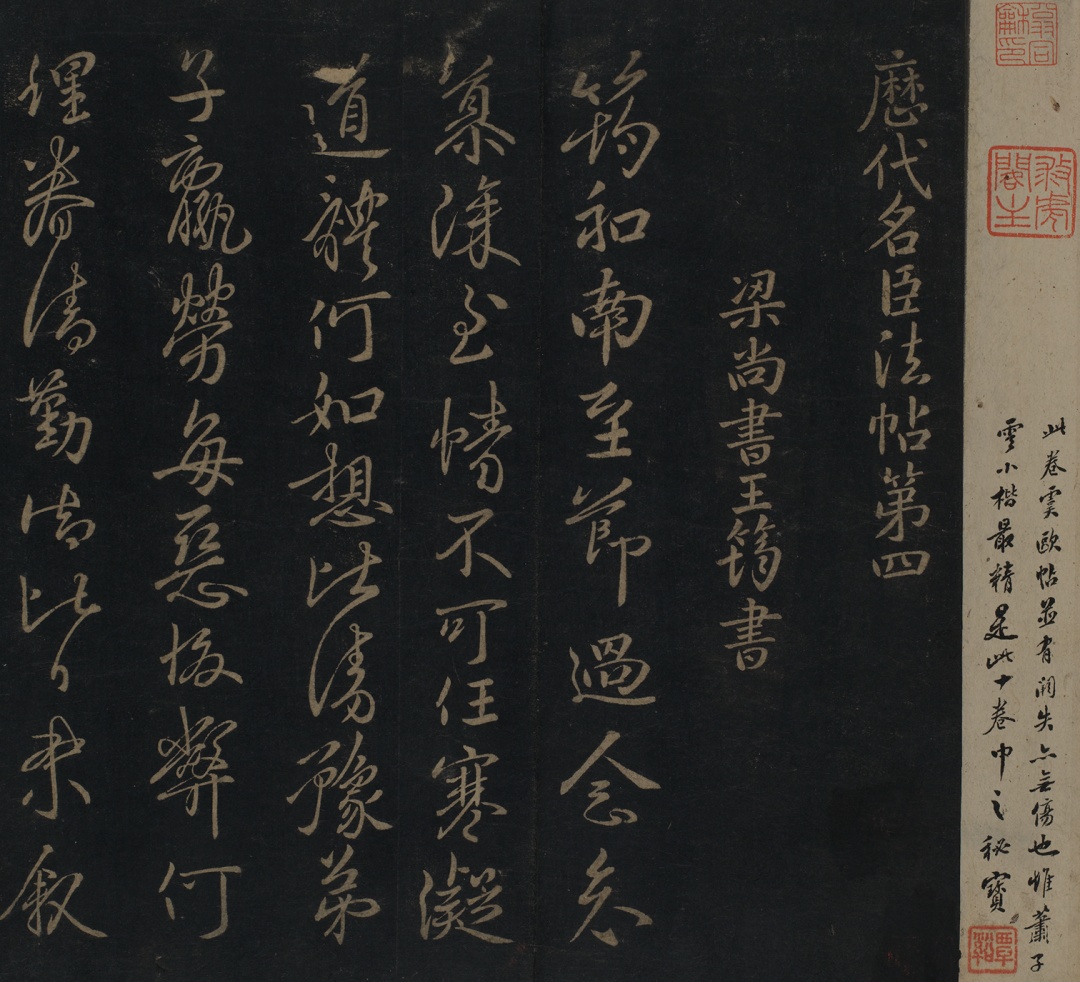 翁同龢印
救虎閣主
此卷虞歐帖並有失亦無傷也惟蕭子
雲小楷最精是此十卷中之秘寶
覃谿
歷代名臣法帖第四
梁尚書王筠書
筠和南至節過念哀
慕深至情不可任寒凝
道體何如想比清豫弟
子羸勞每惡故弊何
理眷清勤清比日未敘